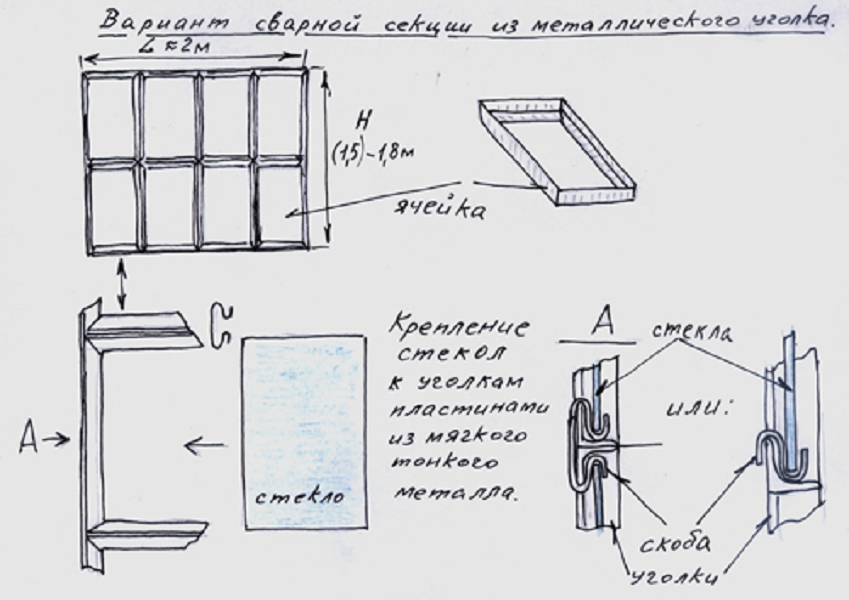 Вариант сварной секции из металлического уголка.
L ≈ 2м
H
(1,5)-1,8м
ячейка
Крепление
стекол
к уголкам
пластинами
из мягкого
тонкого
металла.
A
стекла
или:
A
стекло
скоба
уголки